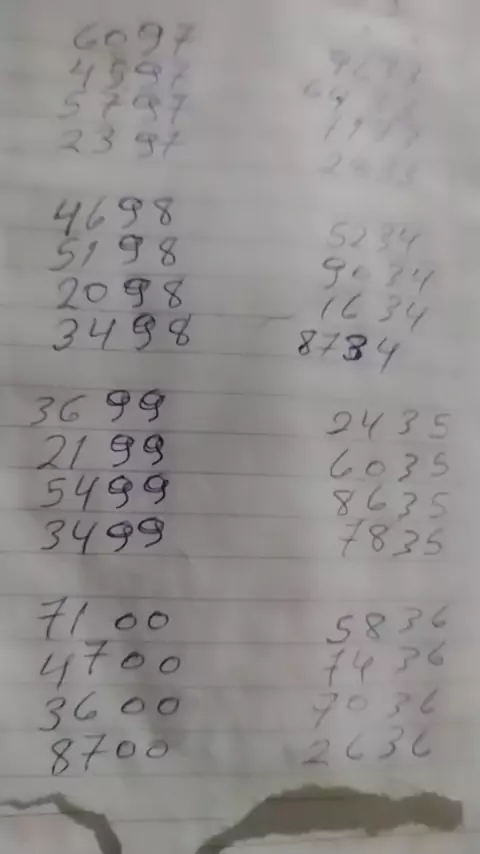 6097
4597
5797
2397
4698
5198
2098
3498
3699
2199
5499
3499
7100
4700
3600
8700
5234
9034
1634
8734
2435
6035
8635
7835
5836
7436
7036
2636